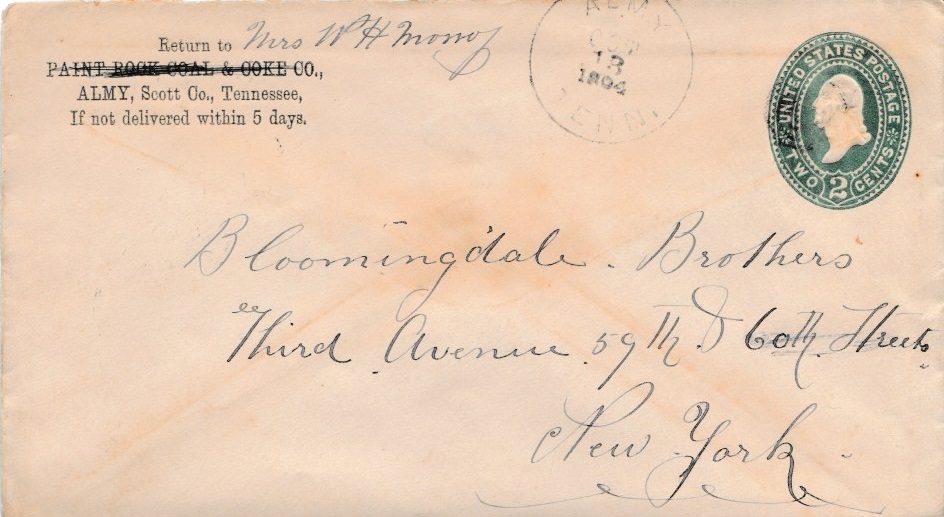 Return to Mrs W H
PAINT ROCK COAL & COKE CO.,
ALMY, Scott Co., Tennessee,
If not delivered within 5 days.
ALMY
OCT
13
1894
TENN.
UNITED STATES POSTAGE
TWO 2 CENTS
Bloomingdale Brothers
Third Avenue 59th & 60th Streets
New York